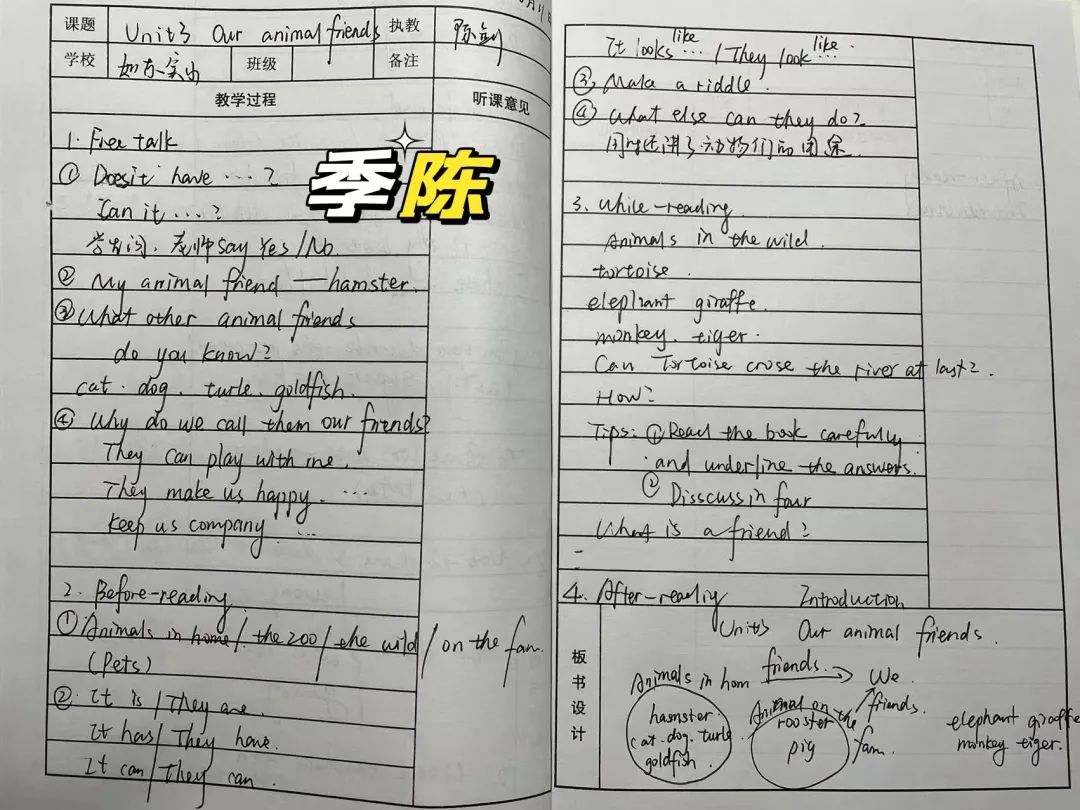 课题 Unit3 Our animal friends 执教 陈剑
学校 如东实小 班级 备注
教学过程 听课意见
季陈
1. Free talk
① Does it have ...?
Can it ...?
学生问，老师say Yes/No.
② My animal friend — hamster.
③ What other animal friends
do you know?
cat. dog. turle. goldfish.
④ Why do we call them our friends?
They can play with me.
They make us happy. ...
keep us company. ...
2. Before-reading
① Animals in home / the zoo / the wild / on the fam.
(Pets)
② It is / They are.
It has / They have.
It can / They can.
It looks like ... / They look like ...
③ Make a riddle.
④ What else can they do?
同时还讲了动物们的用途.
3. While-reading
Animals in the wild.
tortoise.
elephant giraffe.
monkey. tiger.
Can Tortoise crose the river at last?
How?
Tips: ① Read the book carefully
and underline the answers.
② Disscuss in four
What is a friend?
4. After-readiy Introduction
板书设计
Unit3 Our animal friends.
Animals in hom friends. We
hamster.
cat. dog. turle.
goldfish.
Animal on the fam.
rooster
pig
friends.
elephant giraffe
monkey tiger.